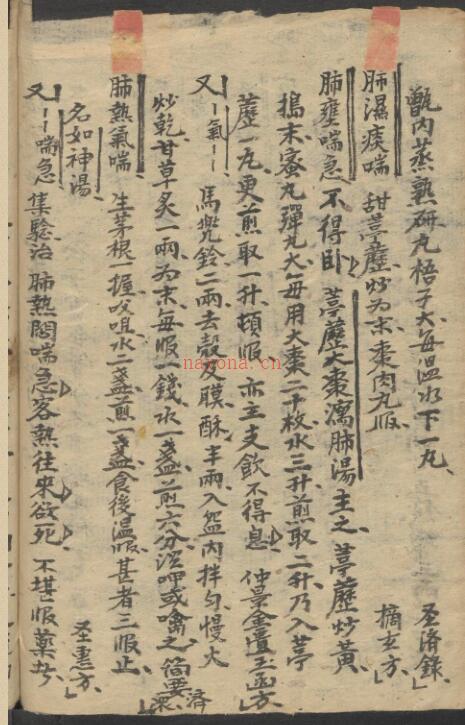 甑內蒸熟研丸梧子大每溫水下一丸 圣济錄
肺濕痰喘 甜葶藶炒为末棗肉丸服 摘玄方
肺壅喘急 不得臥 葶藶大棗瀉肺湯主之 葶藶炒黃
搗末蜜丸彈丸大每用大棗二十枚水三升煎取二升乃入葶
藶一丸更煎取一升頓服 亦主支飲不得息 仲景金匱玉函方
又 丨氣丨丨 馬兜鈴二兩去殼及膜酥半兩入盌內拌勻慢火
炒乾甘草炙一兩为末每服一錢水一盞煎六分溫呷或噙之 簡要濟眾
肺熱氣喘 生茅根一握㕮咀水二盞煎一盞食後溫服甚者三服止
名如神湯 圣惠方
又 丨丨喘急 集驗治 肺熱悶喘急客熱往來欲死 不堪服藥者
nayona.cn